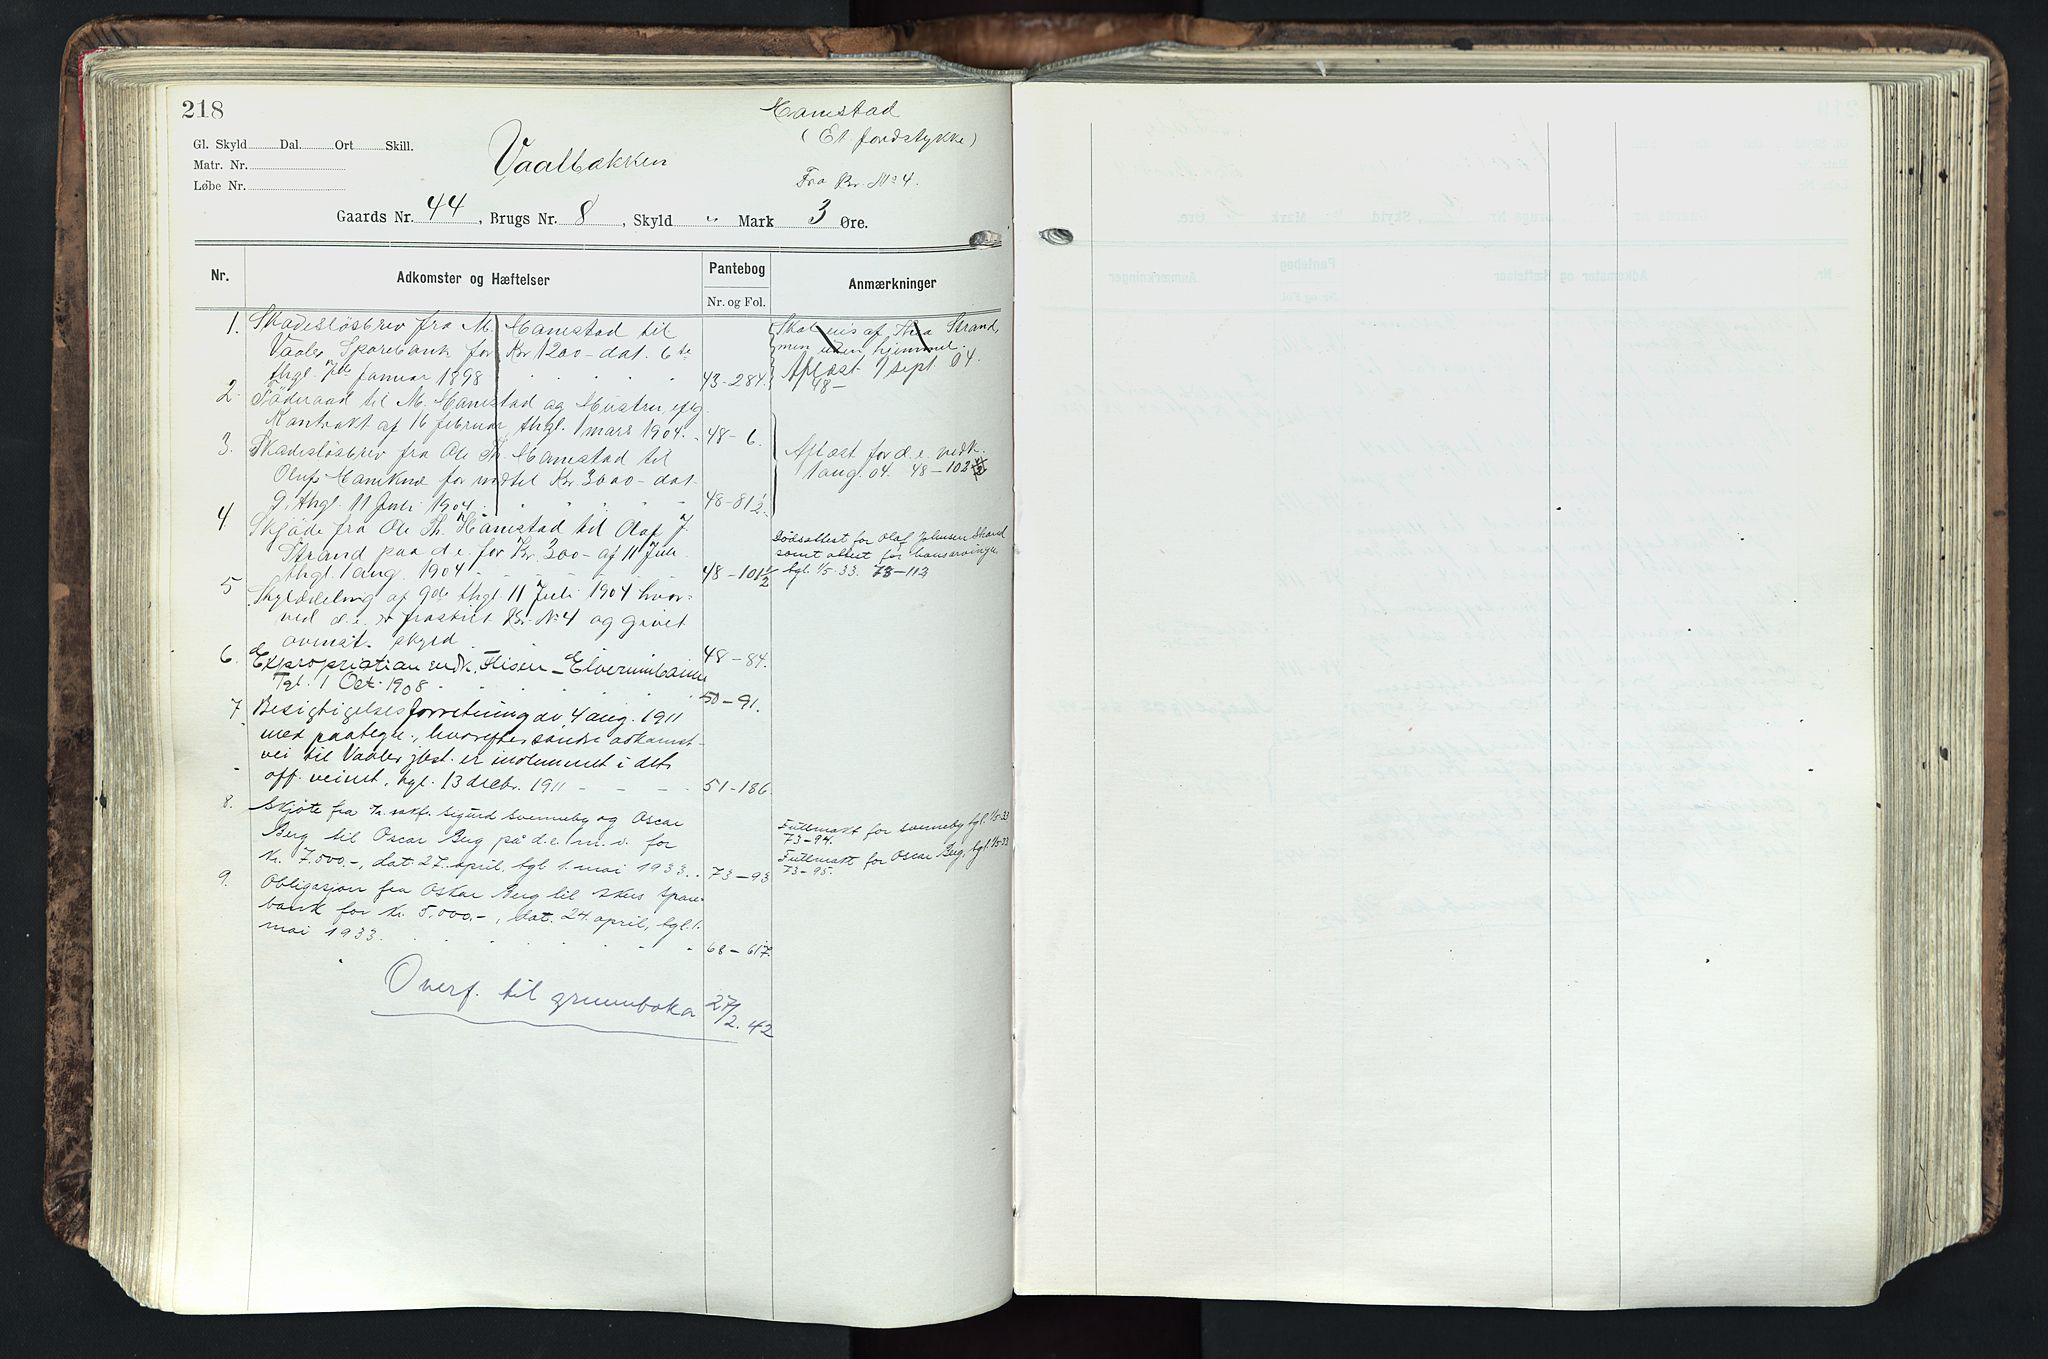 218
Hamstad
(Et Jordstykke)
Gl. Skyld Dal. Ort Skill.
Matr. Nr.
Løbe Nr.
Vaalbækken
Fra Br. No 4.
Gaards Nr. 44, Brugs Nr. 8, Skyld " Mark 3 Øre.
Nr. Adkomster og Hæftelser Pantebog Anmærkninger
Nr. og Fol.
1. Skadesløsbrev fra M. Hamstad til
Vaaler Sparebank for Kr 1200 – dat. 6te
thgl. 7de Januar 1898 43-284.
Skal eies af Strand,
men uden hjemmel.
Aflæst 1 sept. 04.
48-
2. Føderaad til M. Hamstad og Hustru efter
Kontrakt af 16 februar, thgl. 1 mars 1904. 48-6.
3. Skadesløsbrev fra Ole Th. Hamstad til
Oluf for indtil Kr. 3000 – dat.
9, thgl. 11 Juli 1904. 48-81½.
Aflæst for d. e. vedk.
1 aug. 04. 48-102
4. Skjøde fra Ole Th. Hamstad til Olaf J.
Strand paa d. e. for Kr. 300 – af 11 Juli
thgl. 1 aug. 1904 48-101½
Dødsattest for Olaf Johnsen Strand
samt attest for hans arvinger
tgl. 1/5.33. 73-113
5 Skylddeling af 9de thgl. 11 Juli 1904 hvor-
ved d. e. er fraskilt Br. No 4 og givet
ovenst. skyld 48-84.
6. Expropriation vedk. Flisen – Elverumbanen
Tgl. 1 Oct. 1908 50-91.
7. Besigtigelsesforretning av 4 aug. 1911
med paategn., hvorefter søndre adkomst-
vei til Vaaler jbst. er indlemmet i det
off. veinet, tgl. 13 decbr. 1911 51-186.
8. Skjøte fra o.r.sakf. Sigurd Svenneby og Oscar
Berg til Oscar Berg på d.e. m. v. for
kr. 7.500.-, dat. 27. april, tgl. 1. mai 1933. 73-93
Fullmakt for Svenneby tgl. 1/5-33
73-94.
Fullmakt for Oscar Berg, tgl. 1/5-33
73-95.
9. Obligasjon fra Oskar Berg til spare-
bank for kr. 5.000.-, dat. 24. april, tgl. 1.
mai 1933. 68-617.
Overf. til grunnboka 27/2. 42